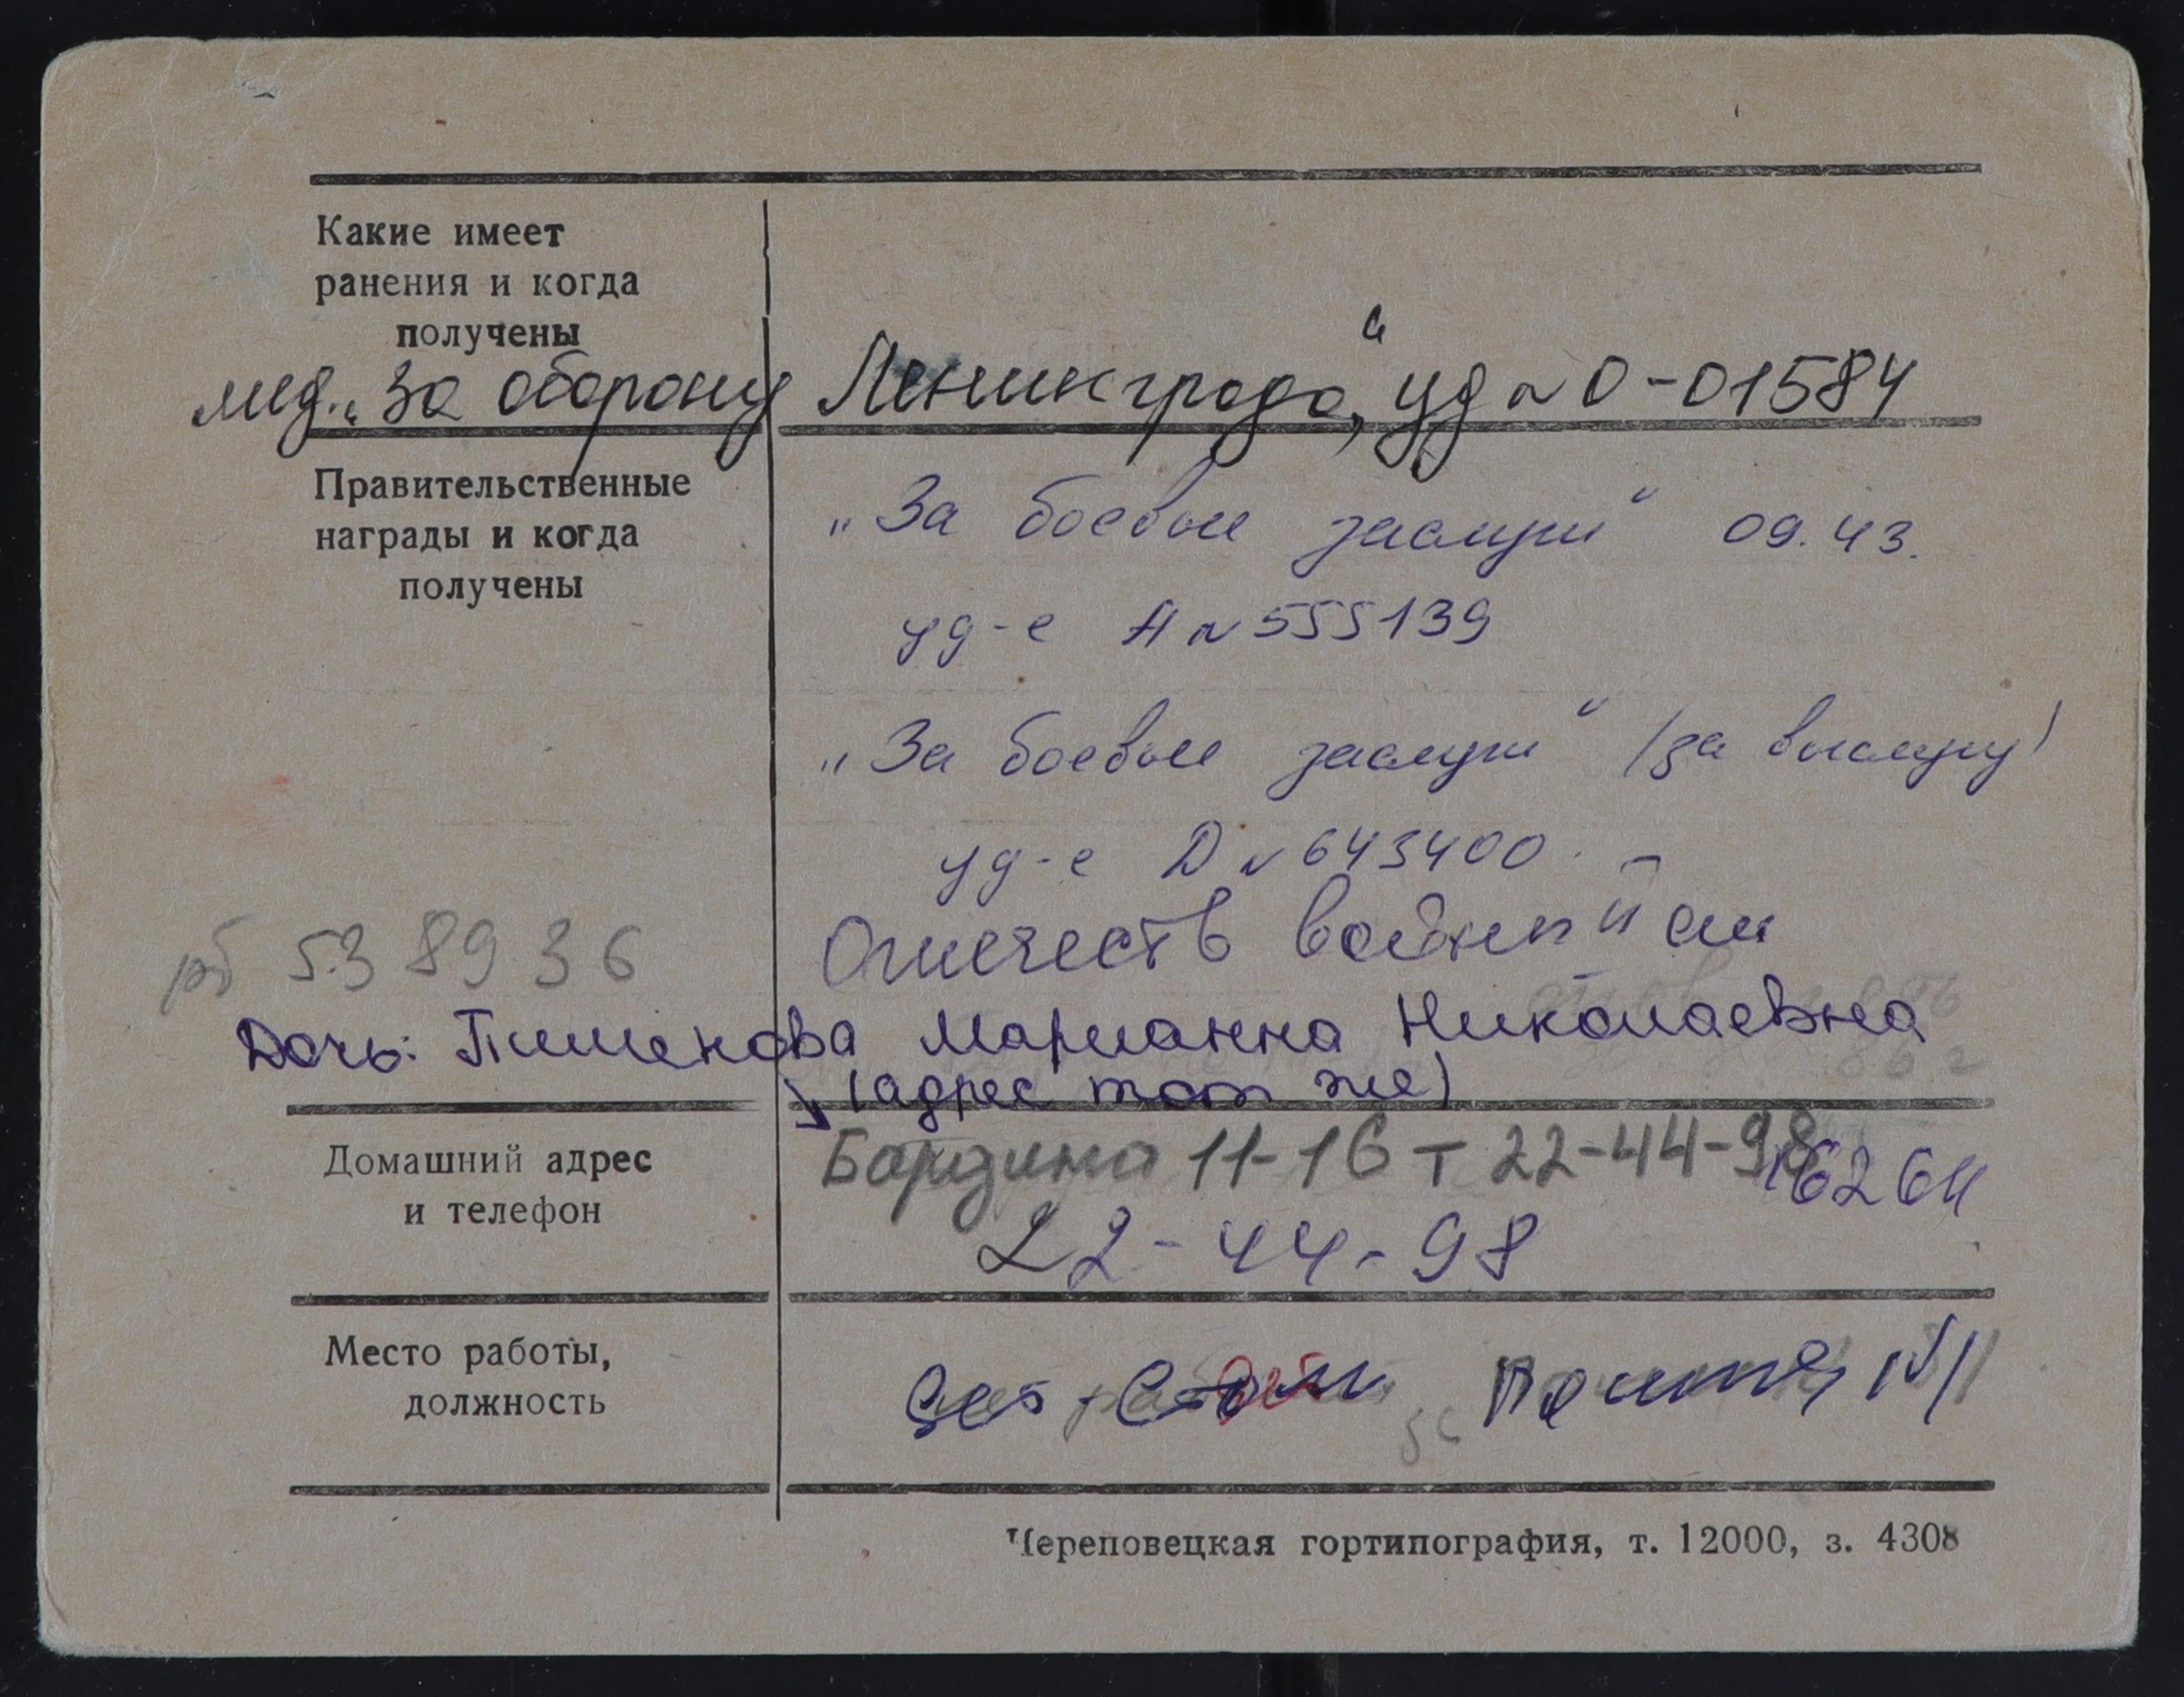 Какие имеет
ранения и когда
получены
мед. „За оборону Ленинграда", уд № 0-01584
Правительственные
награды и когда
получены
„За боевые заслуги" 09.43.
уд-е А № 555139
„За боевые заслуги" (за выслугу)
уд-е D № 643400
Отечеств войны II ст
рб 538936
Дочь: Пименова Марианна Николаевна
(адрес тот же)
Домашний адрес
и телефон
Бардина 11-16 т 22-44-98
22-44-98
Место работы,
должность
Череповецкая гортипография, т. 12000, з. 4308